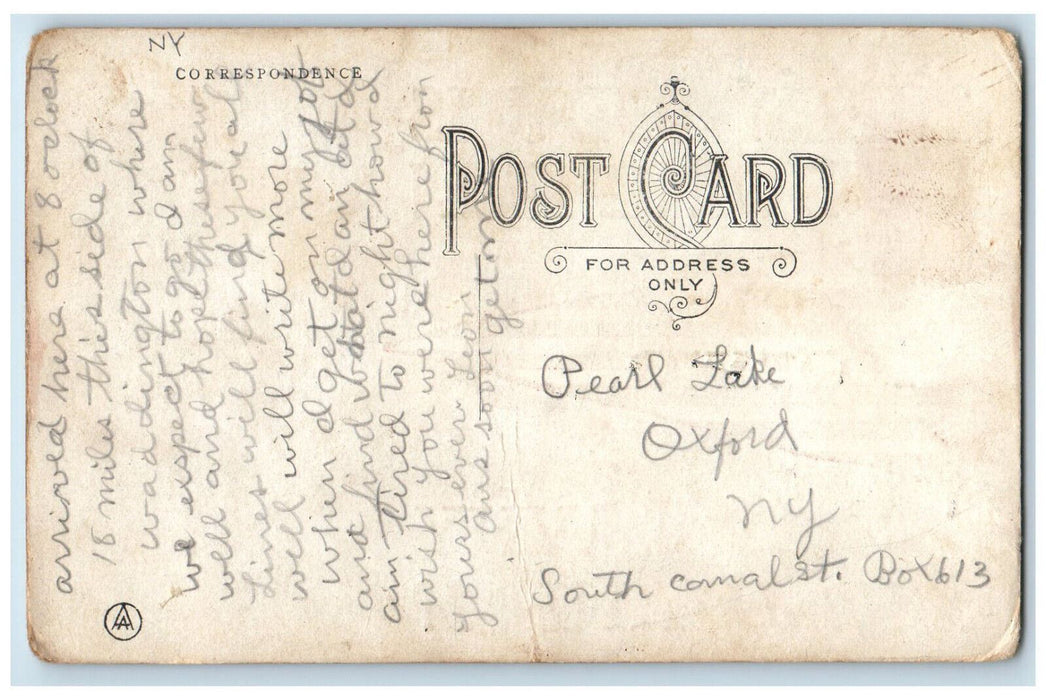 NY
CORRESPONDENCE
arrived here at 8 oclock
18 miles this side of
waddington where
we expect to go I am
well and hope these few
Lines will find you all
well will write more
when I get on my Job
and find what I am at I
am tired to night how I
wish you were here from
yours ever Leon
ans soon get me
POST CARD
FOR ADDRESS
ONLY
Pearl Lake
Oxford
NY
South canal st. Box 613
AA